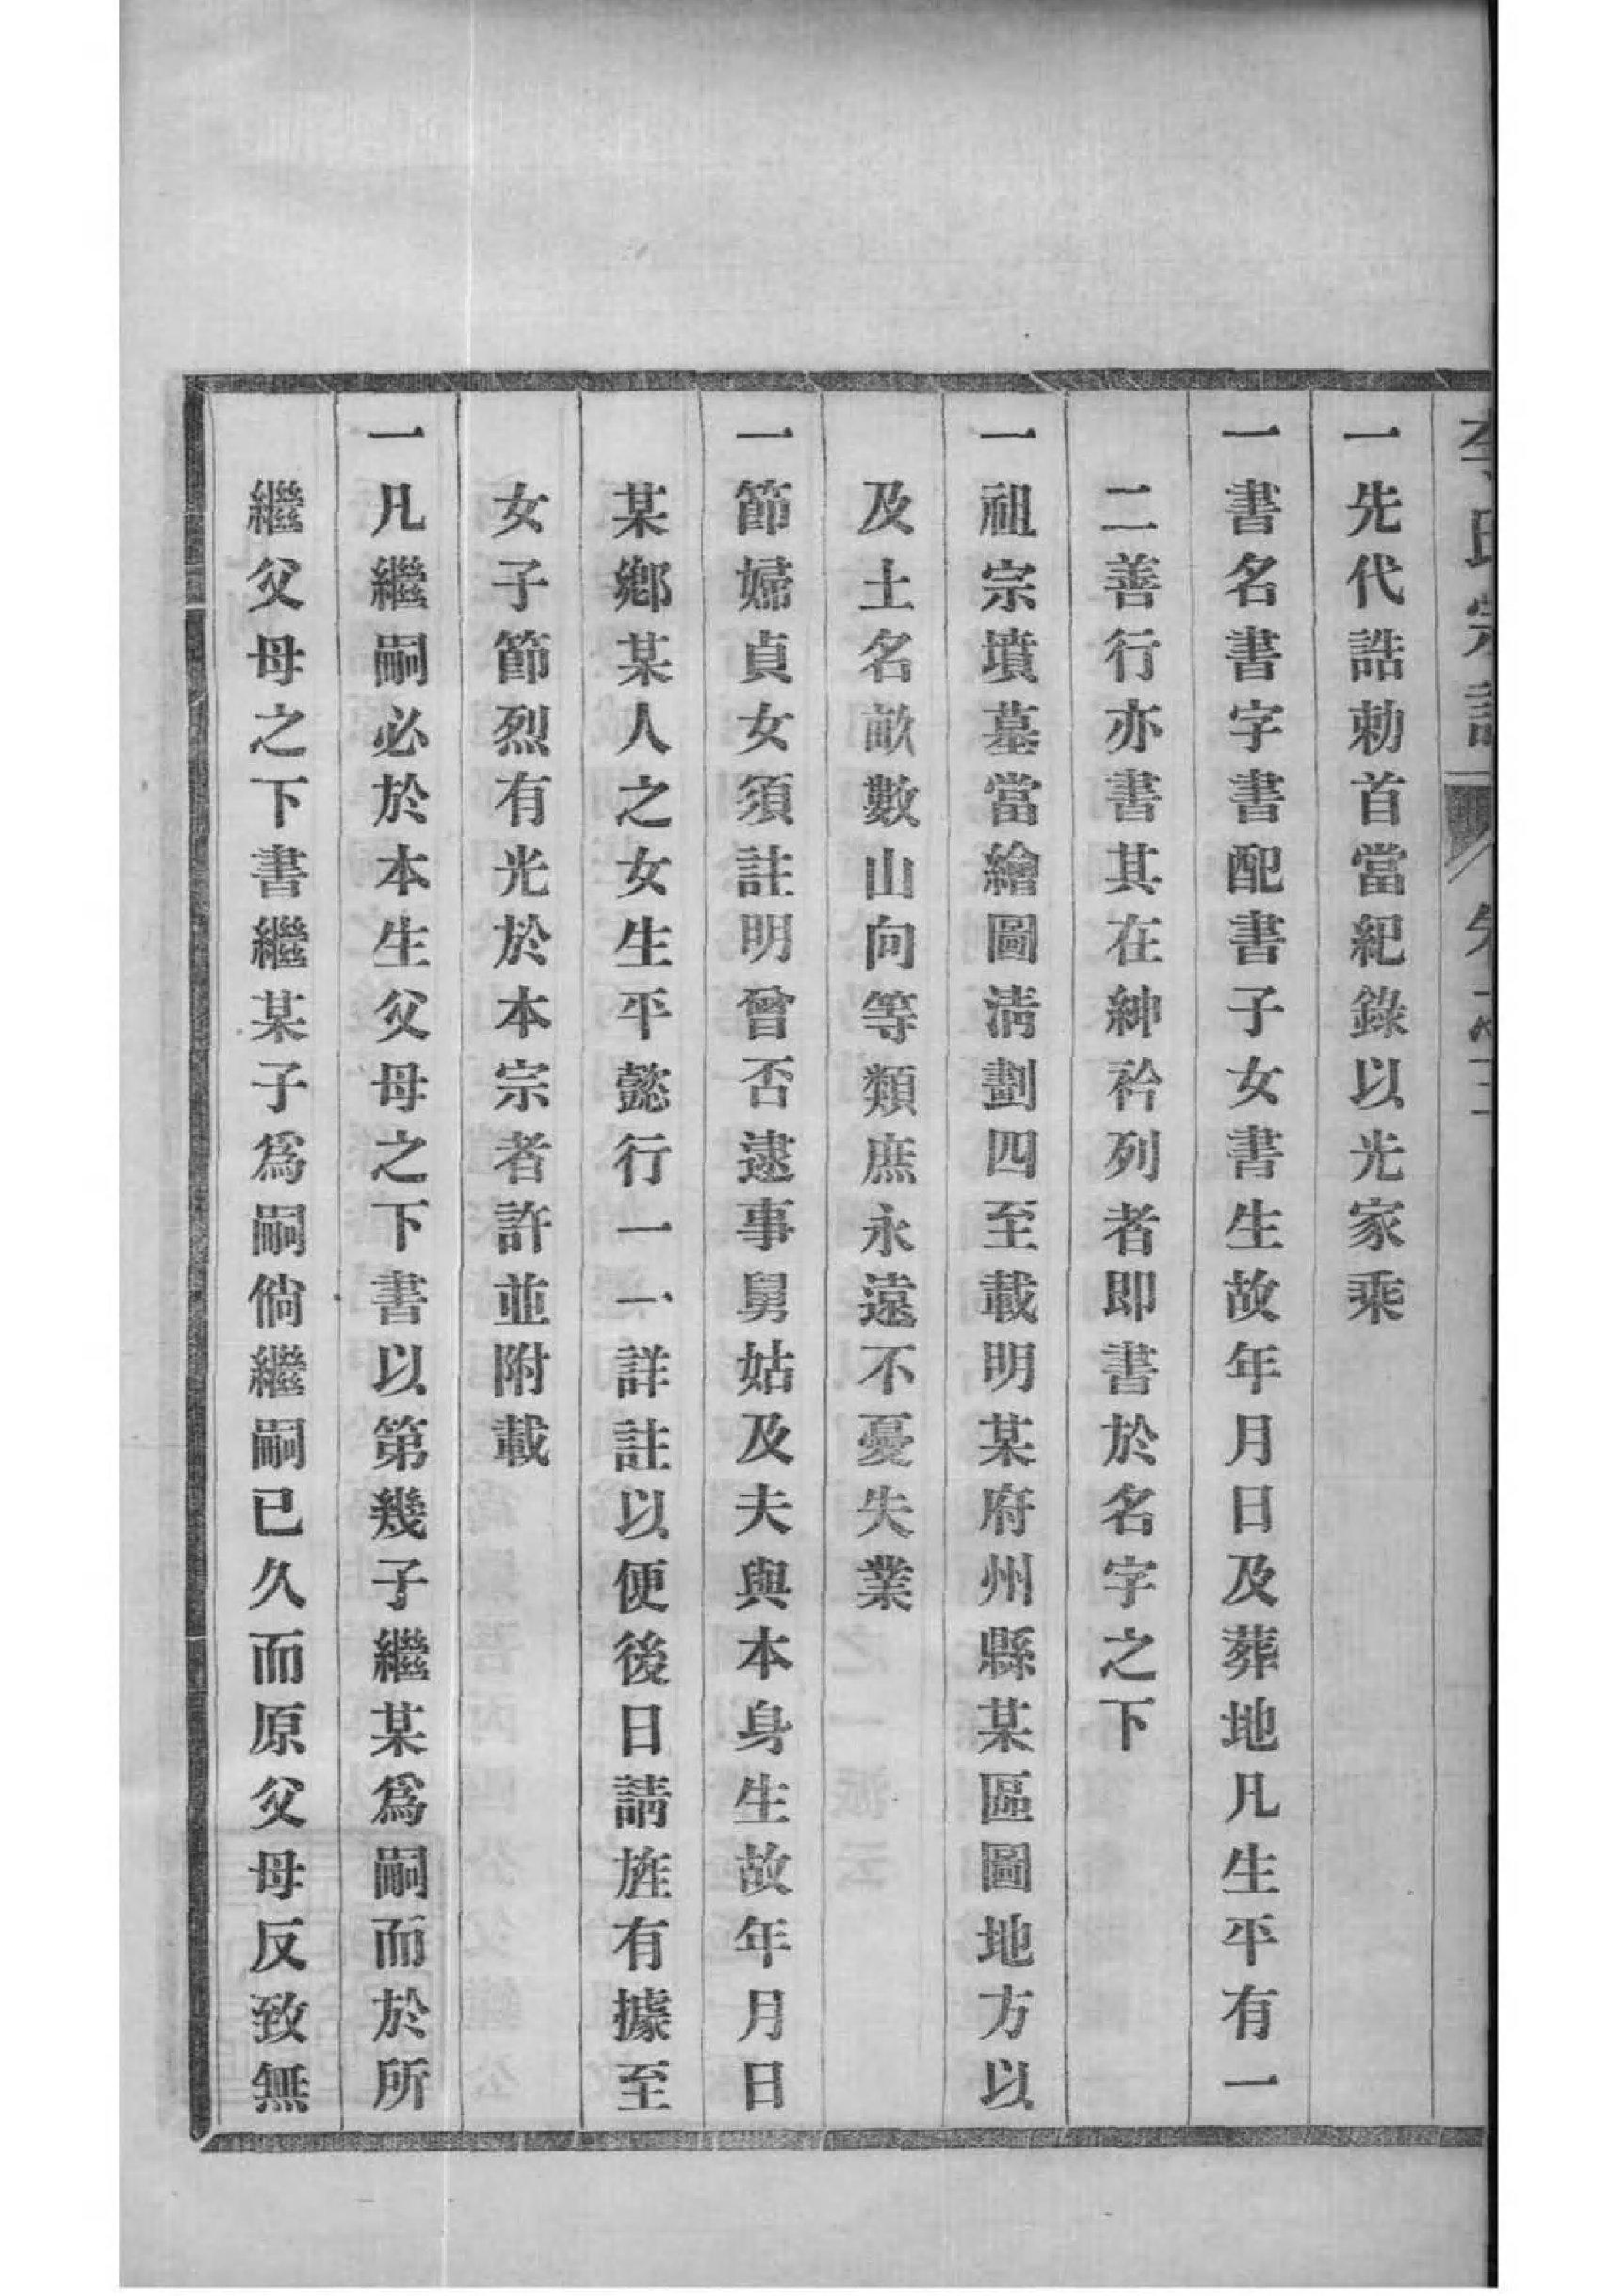 一先代誥勅首當紀錄以光家乘
一書名書字書配書子女書生故年月日及葬地凡生平有一
二善行亦書其在紳衿列者即書於名字之下
一祖宗墳墓當繪圖淸劃四至載明某府州縣某區圖地方以
及土名畝數山向等類庶永遠不憂失業
一節婦貞女須註明曾否逮事舅姑及夫與本身生故年月日
某鄉某人之女生平懿行一一詳註以便後日請旌有據至
女子節烈有光於本宗者許並附載
一凡繼嗣必於本生父母之下書以第幾子繼某爲嗣而於所
繼父母之下書繼某子爲嗣倘繼嗣已久而原父母反致無